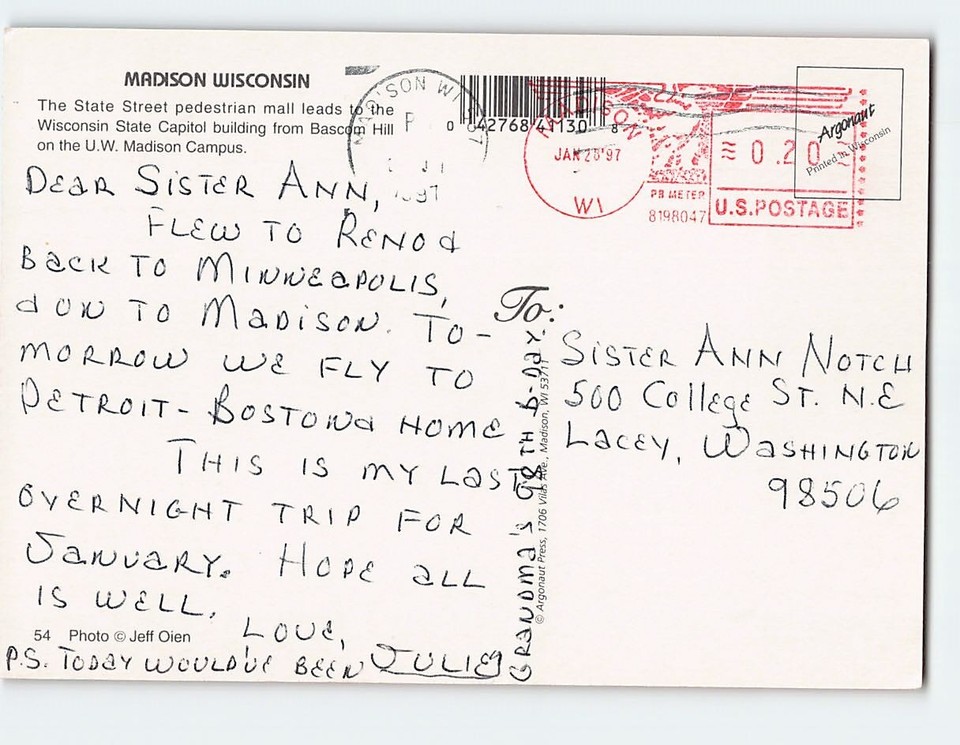 MADISON WISCONSIN
The State Street pedestrian mall leads to the
Wisconsin State Capitol building from Bascom Hill
on the U.W. Madison Campus.
MADISON WI
P
1997
0 42768 41130 8
MADISON
JAN 28 '97
WI
PB METER
8198047
0.20
U.S. POSTAGE
Argonaut
Printed in Wisconsin
DEAR SISTER ANN,
FLEW TO RENO &
BACK TO MINNEAPOLIS,
& ON TO MADISON. TO-
MORROW WE FLY TO
DETROIT - BOSTON & HOME
THIS IS MY LAST
OVERNIGHT TRIP FOR
JANUARY. HOPE ALL
IS WELL.
LOVE,
JULIE
P.S. TODAY WOULD'VE BEEN
GRANDMA'S 98TH B-DAY.
54 Photo © Jeff Oien
© Argonaut Press, 1706 Vilas Ave., Madison, WI 53711
To:
SISTER ANN NOTCH
500 College ST. N.E
LACEY, WASHINGTON
98506